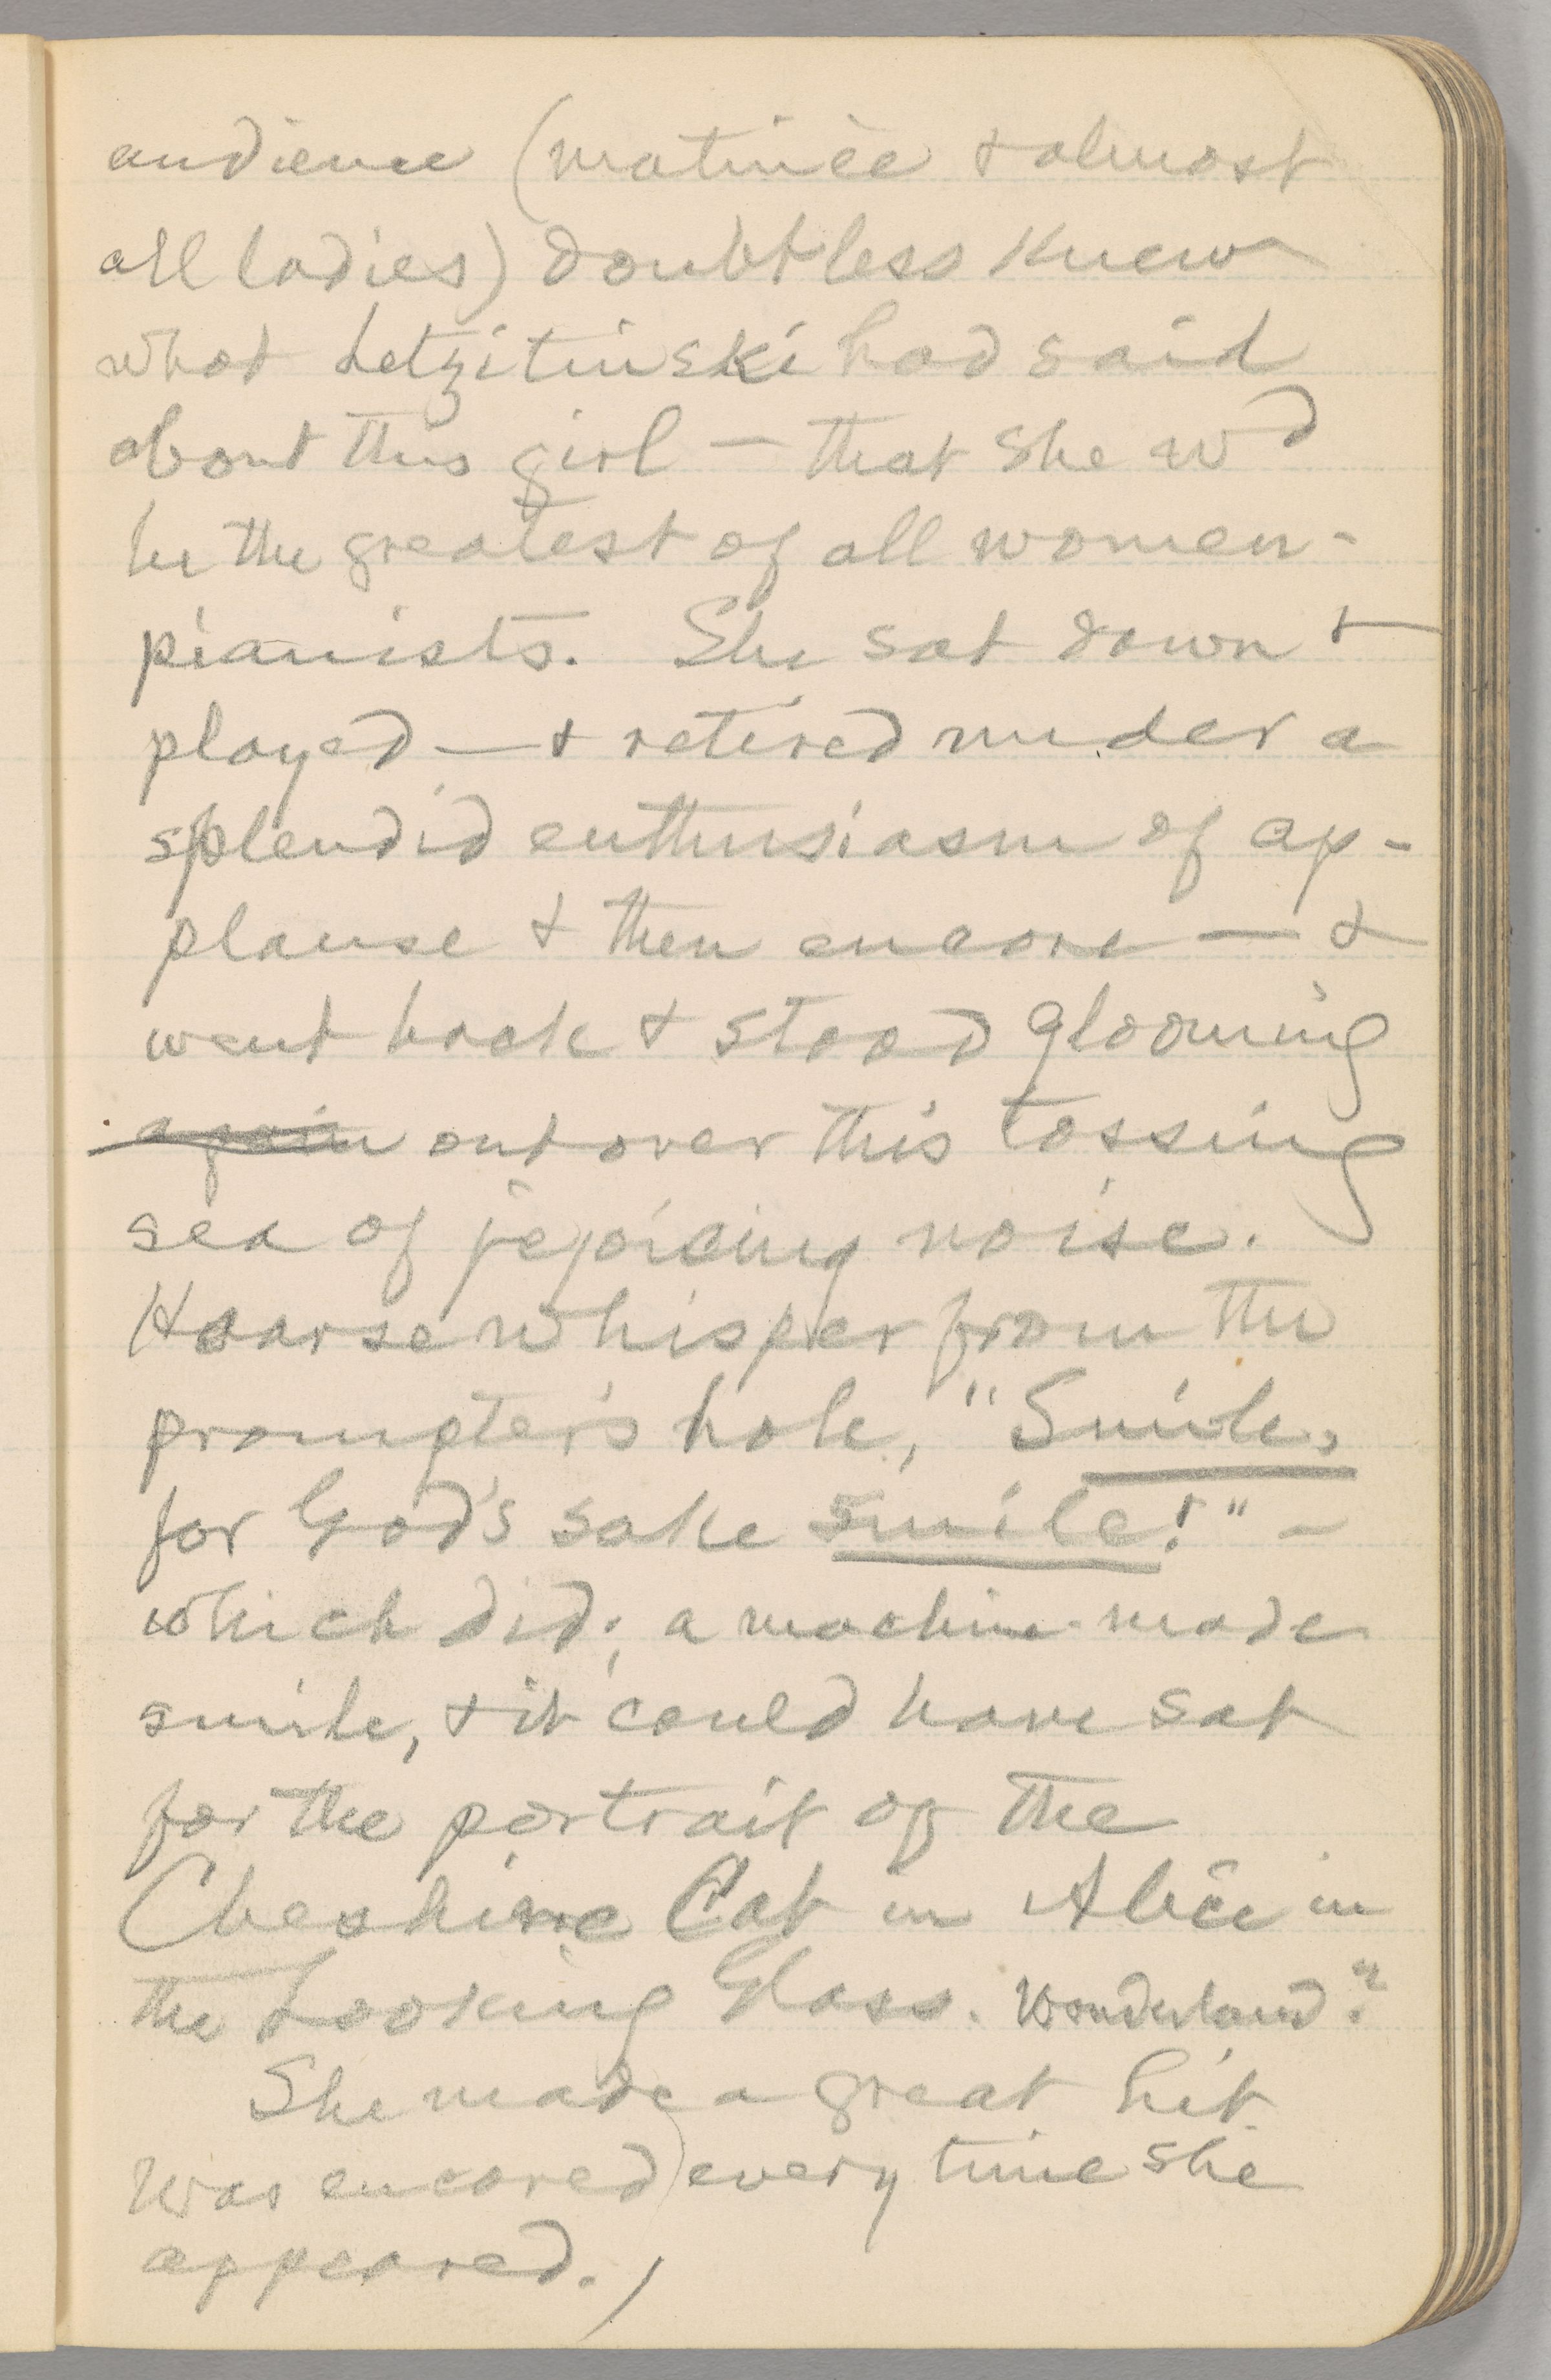 audience (matinèe & almost
all ladies) doubtless knew
what Letzitinski had said
about this girl — that she wd
be the greatest of all women-
pianists. She sat down &
played — & retired under a
splendid enthusiasm of ap-
plause & then encore — &
went back & stood glooming
again out over this tossing
sea of rejoicing noise.
Hoarse whisper from the
prompter's hole, "Smile,
for God's sake smile!" —
which did; a machine-made
smile, & it could have sat
for the portrait of the
Cheshire Cat in Alice in
the Looking Glass. Wonderland?
She made a great hit
was encored every time she
appeared.